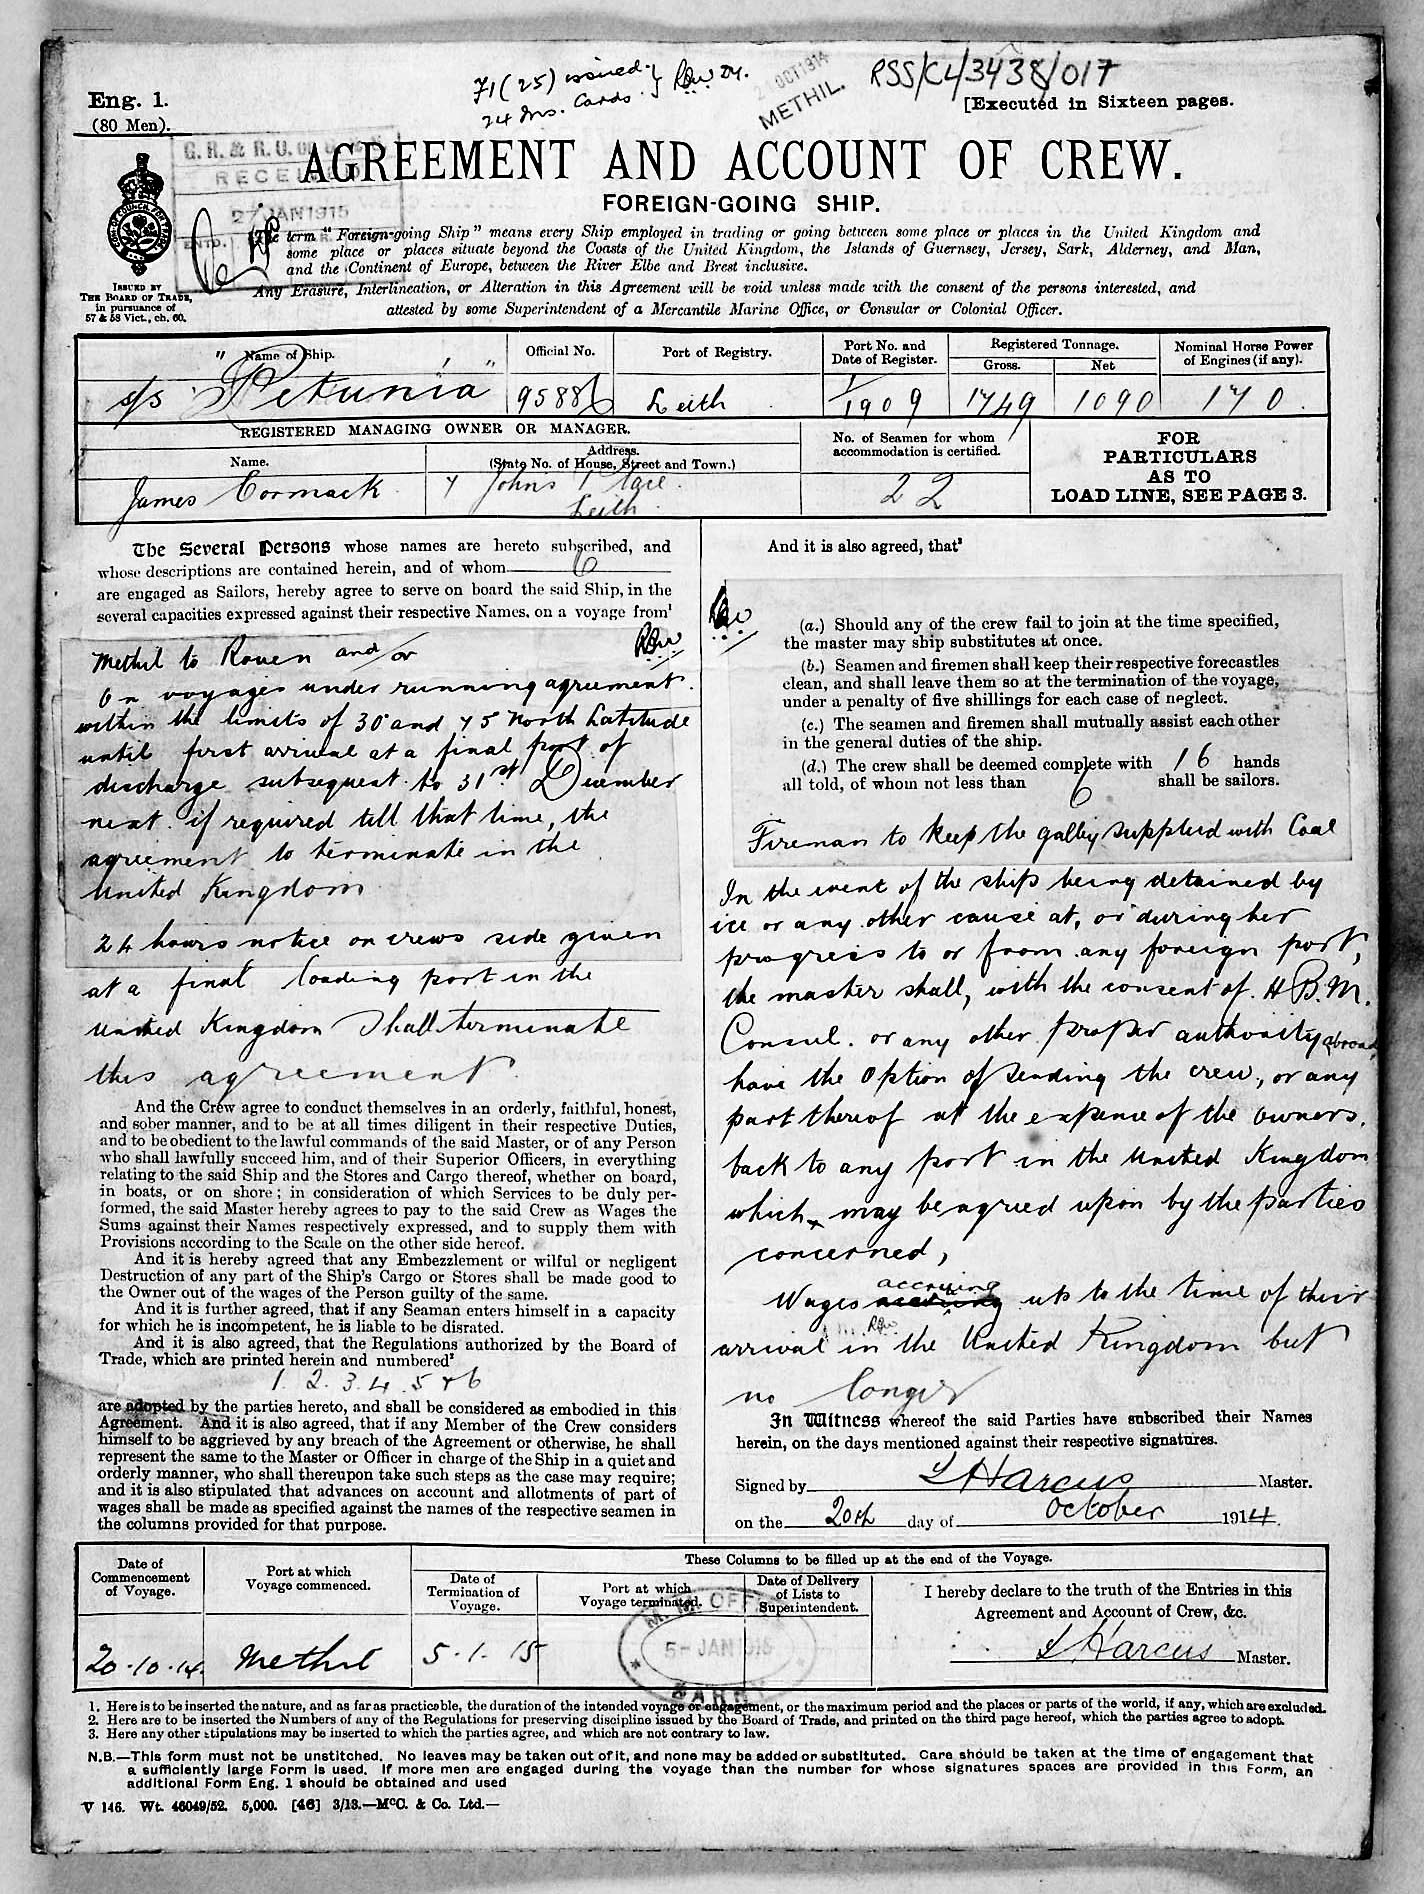 Eng. 1.
(80 Men).
24 Ins. Cards.
OCT 1914
METHIL.
RSS/CL/3438/017
[Executed in Sixteen pages.
RECEIVED
27 JAN 1915
ENTD.
AGREEMENT AND ACCOUNT OF CREW.
FOREIGN-GOING SHIP.
The term "Foreign-going Ship" means every Ship employed in trading or going between some place or places in the United Kingdom and
some place or places situate beyond the Coasts of the United Kingdom, the Islands of Guernsey, Jersey, Sark, Alderney, and Man,
and the Continent of Europe, between the River Elbe and Brest inclusive.
Any Erasure, Interlineation, or Alteration in this Agreement will be void unless made with the consent of the persons interested, and
attested by some Superintendent of a Mercantile Marine Office, or Consular or Colonial Officer.
ISSUED BY
THE BOARD OF TRADE,
in pursuance of
57 & 58 Vict., ch. 60.
Name of Ship.
Official No.
Port of Registry.
Port No. and
Date of Register.
Registered Tonnage.
Gross.
Net
Nominal Horse Power
of Engines (if any).
s/s "Petunia"
95886
Leith
1/1909
1749
1090
170.
REGISTERED MANAGING OWNER OR MANAGER.
Name.
Address.
(State No. of House, Street and Town.)
No. of Seamen for whom
accommodation is certified.
FOR
PARTICULARS
AS TO
LOAD LINE, SEE PAGE 3.
James Cormack
7 Johns Place.
Leith.
22
The Several Persons whose names are hereto subscribed, and
whose descriptions are contained herein, and of whom 6
are engaged as Sailors, hereby agree to serve on board the said Ship, in the
several capacities expressed against their respective Names, on a voyage from¹
Methil to Rouen and/or
On voyages under running agreement
within the limits of 30 and 75 North Latitude
until first arrival at a final port of
discharge subsequent to 31st December
next. if required till that time, the
agreement to terminate in the
United Kingdom
24 hours notice on crews side given
at a final loading port in the
United Kingdom shall terminate
this agreement.
And the Crew agree to conduct themselves in an orderly, faithful, honest,
and sober manner, and to be at all times diligent in their respective Duties,
and to be obedient to the lawful commands of the said Master, or of any Person
who shall lawfully succeed him, and of their Superior Officers, in everything
relating to the said Ship and the Stores and Cargo thereof, whether on board,
in boats, or on shore; in consideration of which Services to be duly per-
formed, the said Master hereby agrees to pay to the said Crew as Wages the
Sums against their Names respectively expressed, and to supply them with
Provisions according to the Scale on the other side hereof.
And it is hereby agreed that any Embezzlement or wilful or negligent
Destruction of any part of the Ship's Cargo or Stores shall be made good to
the Owner out of the wages of the Person guilty of the same.
And it is further agreed, that if any Seaman enters himself in a capacity
for which he is incompetent, he is liable to be disrated.
And it is also agreed, that the Regulations authorized by the Board of
Trade, which are printed herein and numbered²
1. 2. 3. 4. 5 & 6
are adopted by the parties hereto, and shall be considered as embodied in this
Agreement. And it is also agreed, that if any Member of the Crew considers
himself to be aggrieved by any breach of the Agreement or otherwise, he shall
represent the same to the Master or Officer in charge of the Ship in a quiet and
orderly manner, who shall thereupon take such steps as the case may require;
and it is also stipulated that advances on account and allotments of part of
wages shall be made as specified against the names of the respective seamen in
the columns provided for that purpose.
And it is also agreed, that³
(a.) Should any of the crew fail to join at the time specified,
the master may ship substitutes at once.
(b.) Seamen and firemen shall keep their respective forecastles
clean, and shall leave them so at the termination of the voyage,
under a penalty of five shillings for each case of neglect.
(c.) The seamen and firemen shall mutually assist each other
in the general duties of the ship.
(d.) The crew shall be deemed complete with 16 hands
all told, of whom not less than 6 shall be sailors.
Fireman to keep the galley supplied with Coal
In the event of the ship being detained by
ice or any other cause at, or during her
progress to or from any foreign port,
the master shall, with the consent of H.B.M.
Consul. or any other proper authority abroad,
have the option of sending the crew, or any
part thereof at the expense of the owners,
back to any port in the United Kingdom
which may be agreed upon by the parties
concerned,
accruing
Wages up to the time of their
arrival in the United Kingdom but
no longer
In Witness whereof the said Parties have subscribed their Names
herein, on the days mentioned against their respective signatures.
Signed by L Harcus Master.
on the 20th day of October 1914.
Date of
Commencement
of Voyage.
Port at which
Voyage commenced.
These Columns to be filled up at the end of the Voyage.
Date of
Termination of
Voyage.
Port at which
Voyage terminated.
Date of Delivery
of Lists to
Superintendent.
I hereby declare to the truth of the Entries in this
Agreement and Account of Crew, &c.
20.10.14.
Methil
5.1.15
5-JAN 1915
BARRY
L Harcus Master.
1. Here is to be inserted the nature, and as far as practicable, the duration of the intended voyage or engagement, or the maximum period and the places or parts of the world, if any, which are excluded.
2. Here are to be inserted the Numbers of any of the Regulations for preserving discipline issued by the Board of Trade, and printed on the third page hereof, which the parties agree to adopt.
3. Here any other stipulations may be inserted to which the parties agree, and which are not contrary to law.
N.B.—This form must not be unstitched. No leaves may be taken out of it, and none may be added or substituted. Care should be taken at the time of engagement that
a sufficiently large Form is used. If more men are engaged during the voyage than the number for whose signatures spaces are provided in this Form, an
additional Form Eng. 1 should be obtained and used
V 146. Wt. 46049/52. 5,000. [46] 3/13.—McC. & Co. Ltd.—